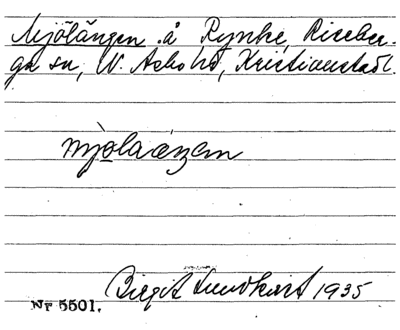 Mjölången å Rynke, Riseber-
ga sn, N. Asbo hd, Kristianstads l.
mjolaáŋen
Birgit Lundkvist 1935
Nr 5501.